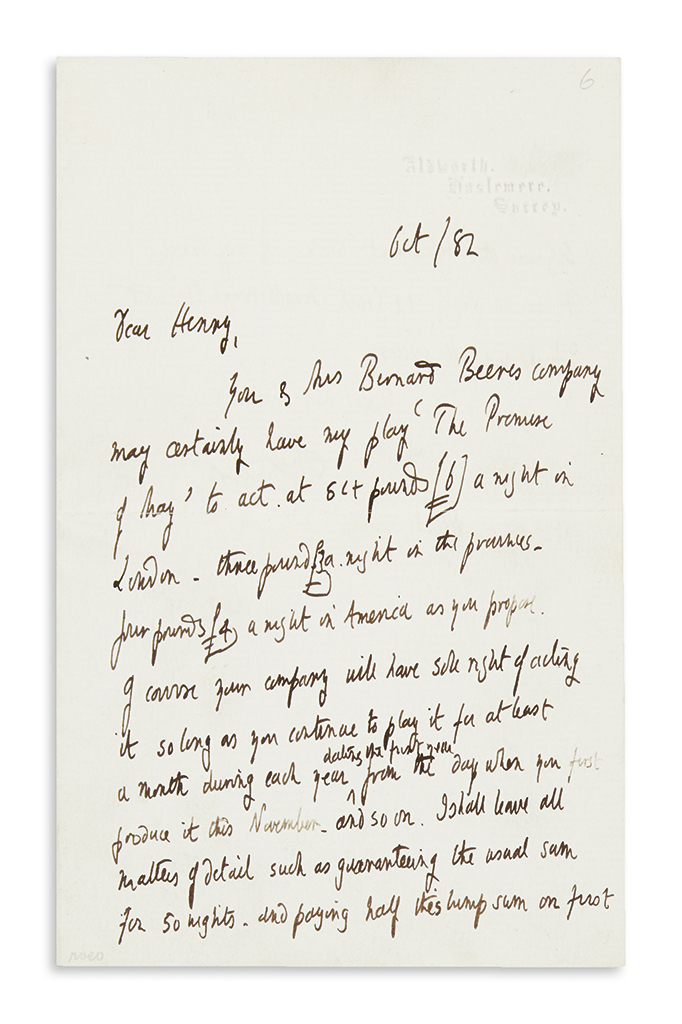 6
Aldworth.
Haslemere.
Surrey.
Oct / 82
Dear Henry,
You & Mrs Bernard Beeres company
may certainly have my play 'The Promise
of May' to act. at six pounds [6] a night in
London - three pounds [3] a night in the provinces -
four pounds [4] a night in America as you propose.
Of course your company will have sole right of acting
it so long as you continue to play it for at least
dating the first year
a month during each year ^ from the day when you first
produce it this November - and so on. I shall leave all
matters of detail such as guaranteeing the usual sum
for 50 nights - and paying half this lump sum on first